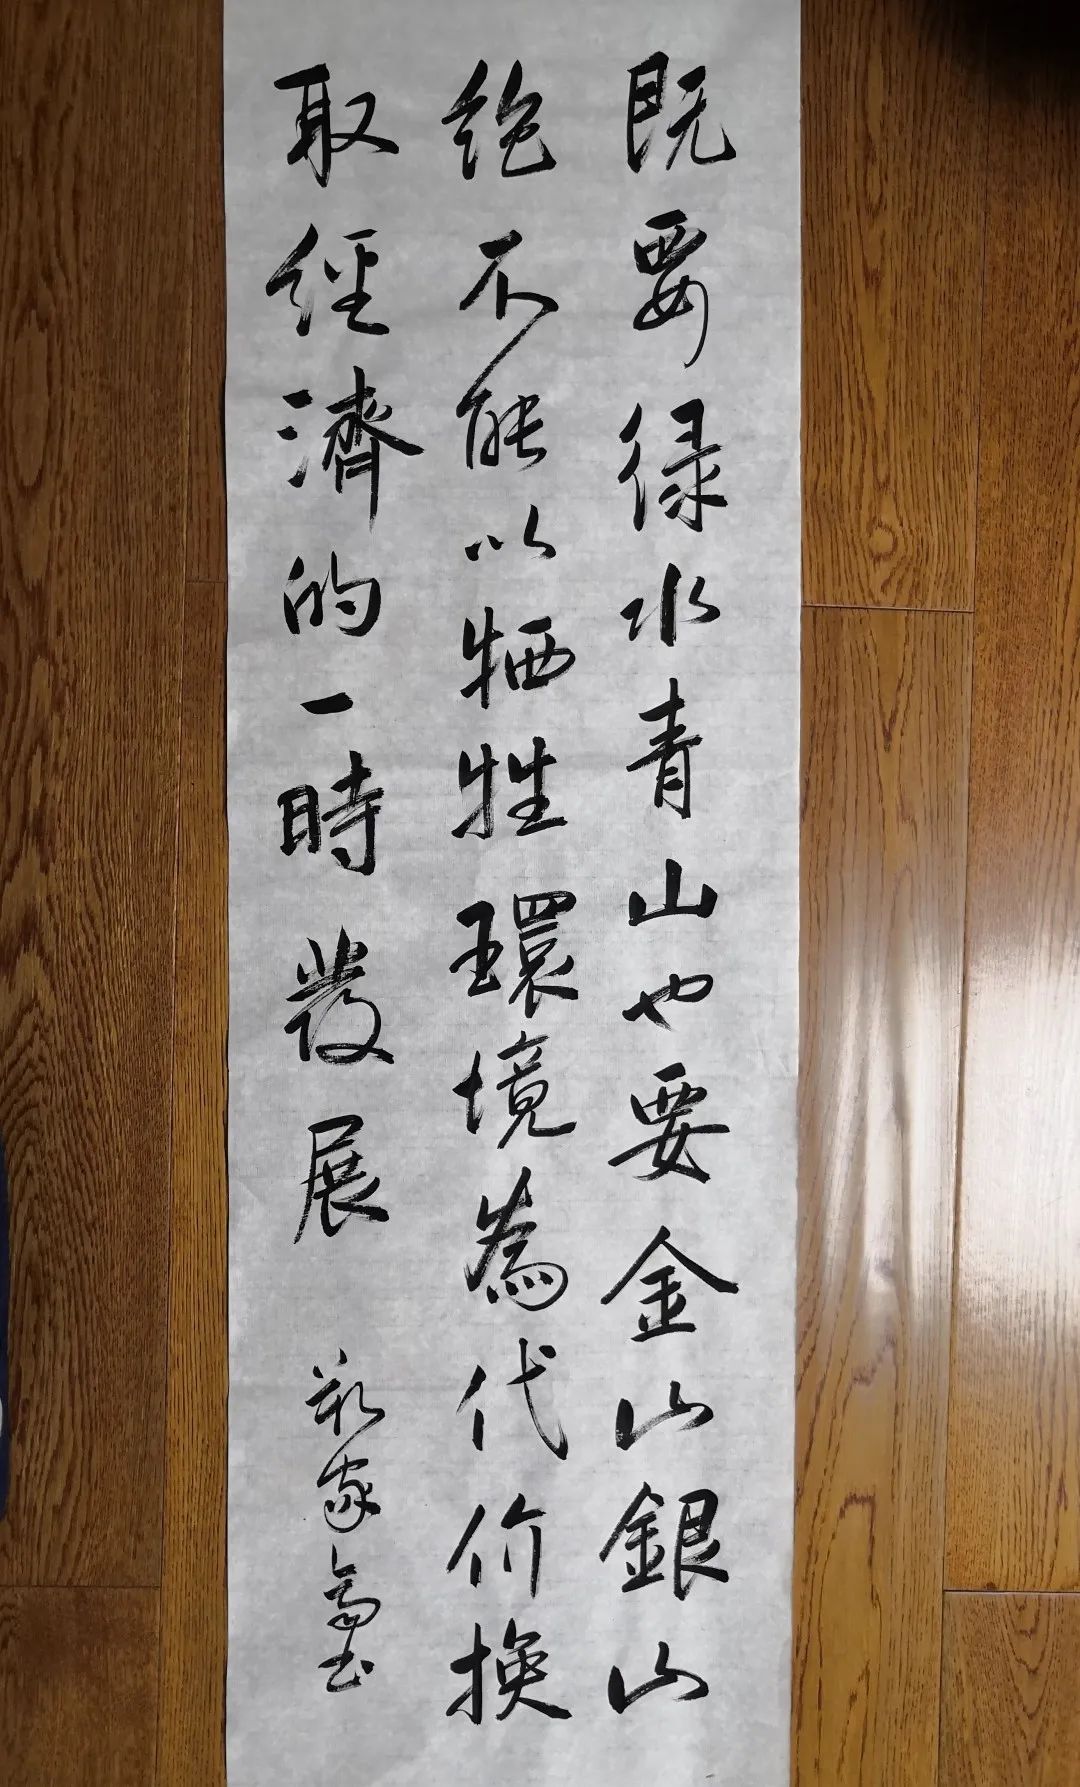 既要绿水青山也要金山銀山
绝不能以牺牲環境為代价换
取經濟的一時發展
家書